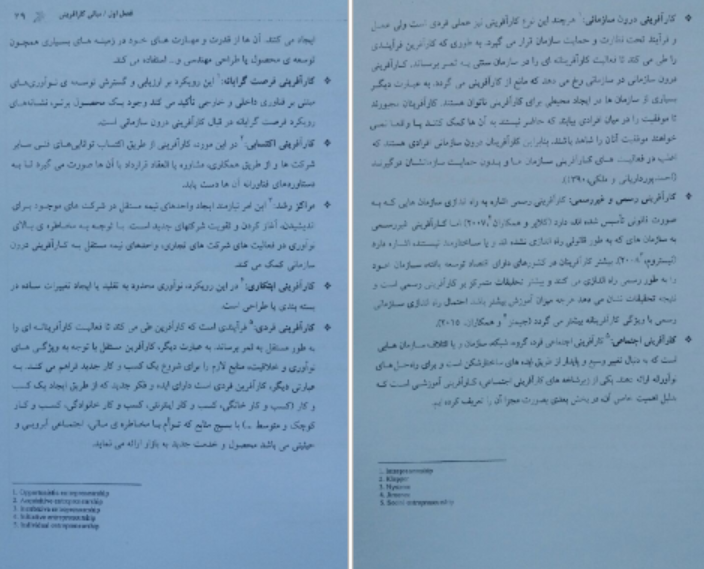 فصل اول / مبانی کارآفرینی ۲۹
ایجاد می کنند. آن ها از قدرت و مهارت های خود در زمینه های بسیاری همچون
توسعه ی محصول یا طراحی مهندسی و... استفاده می کند.
کارآفرینی فرصت گرایانه:۱ این رویکرد بر ارزیابی و گسترش توسعه ی نوآوری‌های
مبتنی بر فناوری داخلی و خارجی تأکید می کند وجود یک محصول برتر، نشانه‌های
رویکرد فرصت گرایانه در قبال کارآفرینی درون سازمانی است.
کارآفرینی اکتسابی:۲ در این مورد، کارآفرینی از طریق اکتساب توانایی‌های فنی سایر
شرکت ها و از طریق همکاری، مشاوره یا انعقاد قرارداد با آن ها صورت می گیرد تا به
دستاوردهای فناورانه آن ها دست یابد.
مراکز رشد:۳ این امر نیازمند ایجاد واحدهای نیمه مستقل در شرکت های موجود برای
اندیشیدن، آغاز کردن و تقویت شرکتهای جدید است. با توجه به مخاطره ی بالای
نوآوری در فعالیت های شرکت های تجاری، واحدهای نیمه مستقل به کارآفرینی درون
سازمانی کمک می کند.
کارآفرینی ابتکاری:۴ در این رویکرد، نوآوری محدود به تقلید یا ایجاد تغییرات ساده در
بسته بندی یا طراحی است.
کارآفرینی فردی:۵ فرآیندی است که کارآفرین طی می کند تا فعالیت کارآفرینانه ای را
به طور مستقل به ثمر برساند. به عبارت دیگر، کارآفرین مستقل با توجه به ویژگی های
نوآوری و خلاقیت، منابع لازم را برای شروع یک کسب و کار جدید فراهم می کند. به
عبارتی دیگر، کارآفرین فردی است دارای ایده و فکر جدید که از طریق ایجاد یک کسب
و کار (کسب و کار خانگی، کسب و کار اینترنتی، کسب و کار خانوادگی، کسب و کار
کوچک و متوسط ...) با بسیج منابع که توأم با مخاطره ی مالی، اجتماعی آبرویی و
حیثیتی می باشد محصول و خدمت جدید به بازار ارائه می نماید.
1. Opportunistic entrepreneurship
2. Acquisitive entrepreneurship
3. Incubative entrepreneurship
4. Imitative entrepreneurship
5. Individual entrepreneurship
کارآفرینی درون سازمانی:۱ هرچند این نوع کارآفرینی نیز عملی فردی است ولی عمل
و فرآیند تحت نظارت و حمایت سازمان قرار می گیرد. به طوری که کارآفرین فرآیندی
را طی می کند تا فعالیت کارآفرینانه ای را در سازمان سنتی به ثمر برساند. کارآفرینی
درون سازمانی در سازمانی رخ می دهد که مانع از کارآفرینی می گردد. به عبارت دیگر
بسیاری از سازمان ها در ایجاد محیطی برای کارآفرینی ناتوان هستند. کارآفرینان مجبورند
تا موفقیت را در میان افرادی بیابند که حاضر نیستند به آن ها کمک کنند یا واقعا نمی
خواهند موفقیت آنان را شاهد باشند. بنابراین کارآفرینان درون سازمانی افرادی هستند که
اغلب در فعالیت های کارآفرینی سازمان ها و بدون حمایت سازمانشان درگیرند
(احمدپورداریانی و ملکی، ۱۳۹۰).
کارآفرینی رسمی و غیررسمی: کارآفرینی رسمی اشاره به راه اندازی سازمان هایی که به
صورت قانونی تأسیس شده اند دارد (کلاپر و همکاران۲، ۲۰۰۷) اما کارآفرینی غیررسمی
به سازمان های که به طور قانونی راه اندازی نشده اند و یا ساختارمند نیستند، اشاره دارد
(نیستروم۳، ۲۰۰۸). بیشتر کارآفرینان در کشورهای دارای اقتصاد توسعه یافته، سازمان خود
را به طور رسمی راه اندازی می کنند و بیشتر تحقیقات متمرکز بر کارآفرینی رسمی است و
نتیجه تحقیقات نشان می دهد هرچه میزان آموزش بیشتر باشد احتمال راه اندازی سازمانی
رسمی با ویژگی کارآفرینانه بیشتر می گردد (جیمنز۴ و همکاران، ۲۰۱۵).
کارآفرینی اجتماعی:۵ کارآفرینی اجتماعی فرد، گروه، شبکه، سازمان و یا ائتلاف سازمان هایی
است که به دنبال تغییر وسیع و پایدار از طریق ایده های ساختارشکن است و برای راه‌حل‌های
نوآورانه ارائه دهند. یکی از زیرشاخه های کارآفرینی اجتماعی، کارآفرینی آموزشی است که
بدلیل اهمیت خاص آن، در بخش بعدی بصورت مجزا آن را تعریف کرده ایم.
1. Intrapreneurship
2. Klapper
3. Nystrom
4. Jimenez
5. Social entrepreneurship